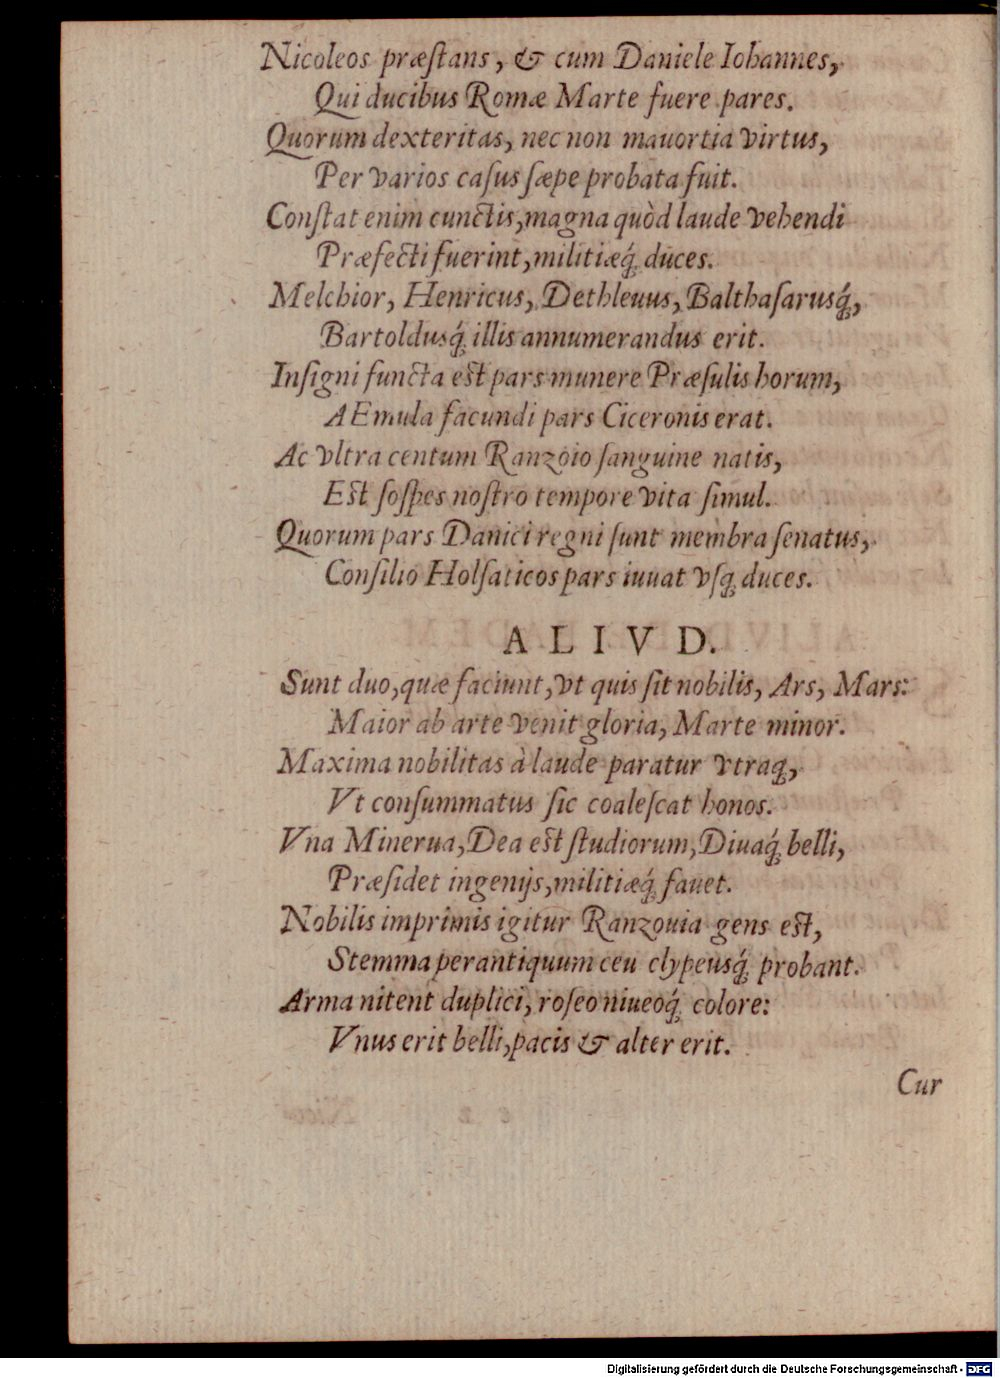 Nicoleos præſtans, & cum Daniele Iohannes,
Qui ducibus Romæ Marte fuere pares.
Quorum dexteritas, nec non mauortia virtus,
Per varios caſus ſæpe probata fuit.
Conſtat enim cunctis, magna quòd laude vehendi
Præfecti fuerint, militiæq́; duces.
Melchior, Henricus, Dethleuus, Balthaſarusq́;,
Bartoldusq́; illis annumerandus erit.
Inſigni functa est pars munere Præſulis horum,
AEmula facundi pars Ciceronis erat.
Ac vltra centum Ranzoio ſanguine natis,
Est ſoſpes noſtro tempore vita ſimul.
Quorum pars Danici regni ſunt membra ſenatus,
Conſilio Holſaticos pars iuuat vſq; duces.
ALIVD.
Sunt duo, quæ faciunt, vt quis ſit nobilis, Ars, Mars:
Maior ab arte venit gloria, Marte minor.
Maxima nobilitas à laude paratur vtraq;,
Vt conſummatus ſic coaleſcat honos.
Vna Minerua, Dea est ſtudiorum, Diuaq́; belli,
Præſidet ingenijs, militiæq́; fauet.
Nobilis imprimis igitur Ranzouia gens est,
Stemma perantiquum ceu clypeusq́; probant.
Arma nitent duplici, roſeo niueoq́; colore:
Vnus erit belli, pacis & alter erit.
Cur
Digitalisierung gefördert durch die Deutsche Forschungsgemeinschaft - DFG